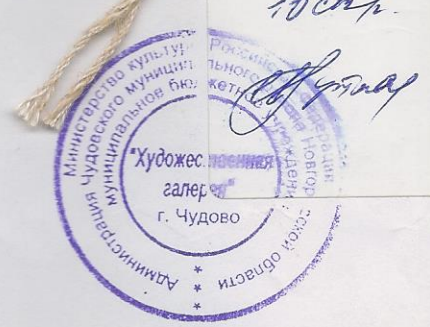 10 стр.
Министерство культуры Российской Федерации
Администрация Чудовского муниципального района Новгородской области
муниципальное бюджетное учреждение
"Художественная
галерея"
г. Чудово